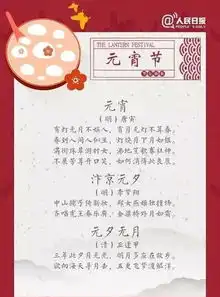 @人民日报
PEOPLE'S DAILY
THE LANTERN FESTIVAL
元宵节
元宵
(明)唐寅
有灯无月不娱人，有月无灯不算春。
春到人间人似玉，灯烧月下月如银。
满街珠翠游村女，沸地笙歌赛社神。
不展芳尊开口笑，如何消得此良辰。
汴京元夕
(明)李梦阳
中山孺子倚新妆，郑女燕姬独擅场。
齐唱宪王春乐府，金梁桥外月如霜。
元夕无月
(清)丘逢甲
三年此夕月无光，明月多应在故乡。
欲向海天寻月去，五更飞梦渡鲲洋。